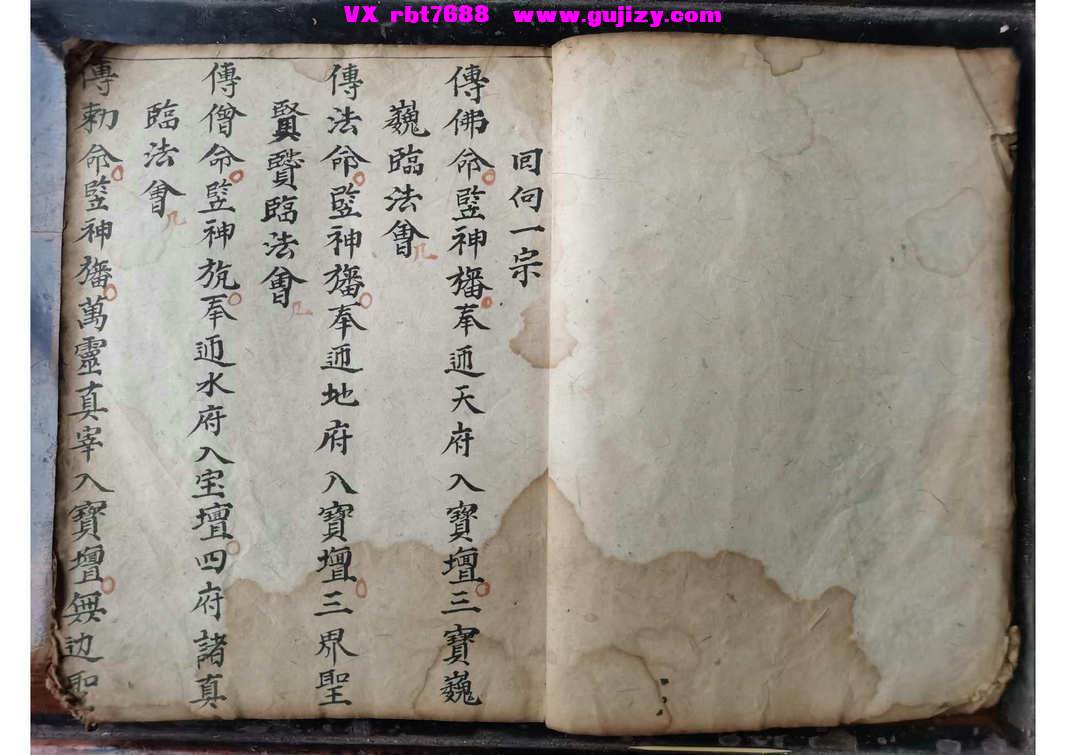 VX rbt7688 www.gujizy.com
囘向一宗
傳佛命竪神旛奉迊天府入寳壇三寳巍
巍臨法會
傳法命竪神旛奉迊地府入寳壇三界聖
賢賢臨法會
傳僧命竪神旐奉迊水府入宝壇四府諸真
臨法會
傳勅命竪神旛萬靈真宰入寳壇無边聖